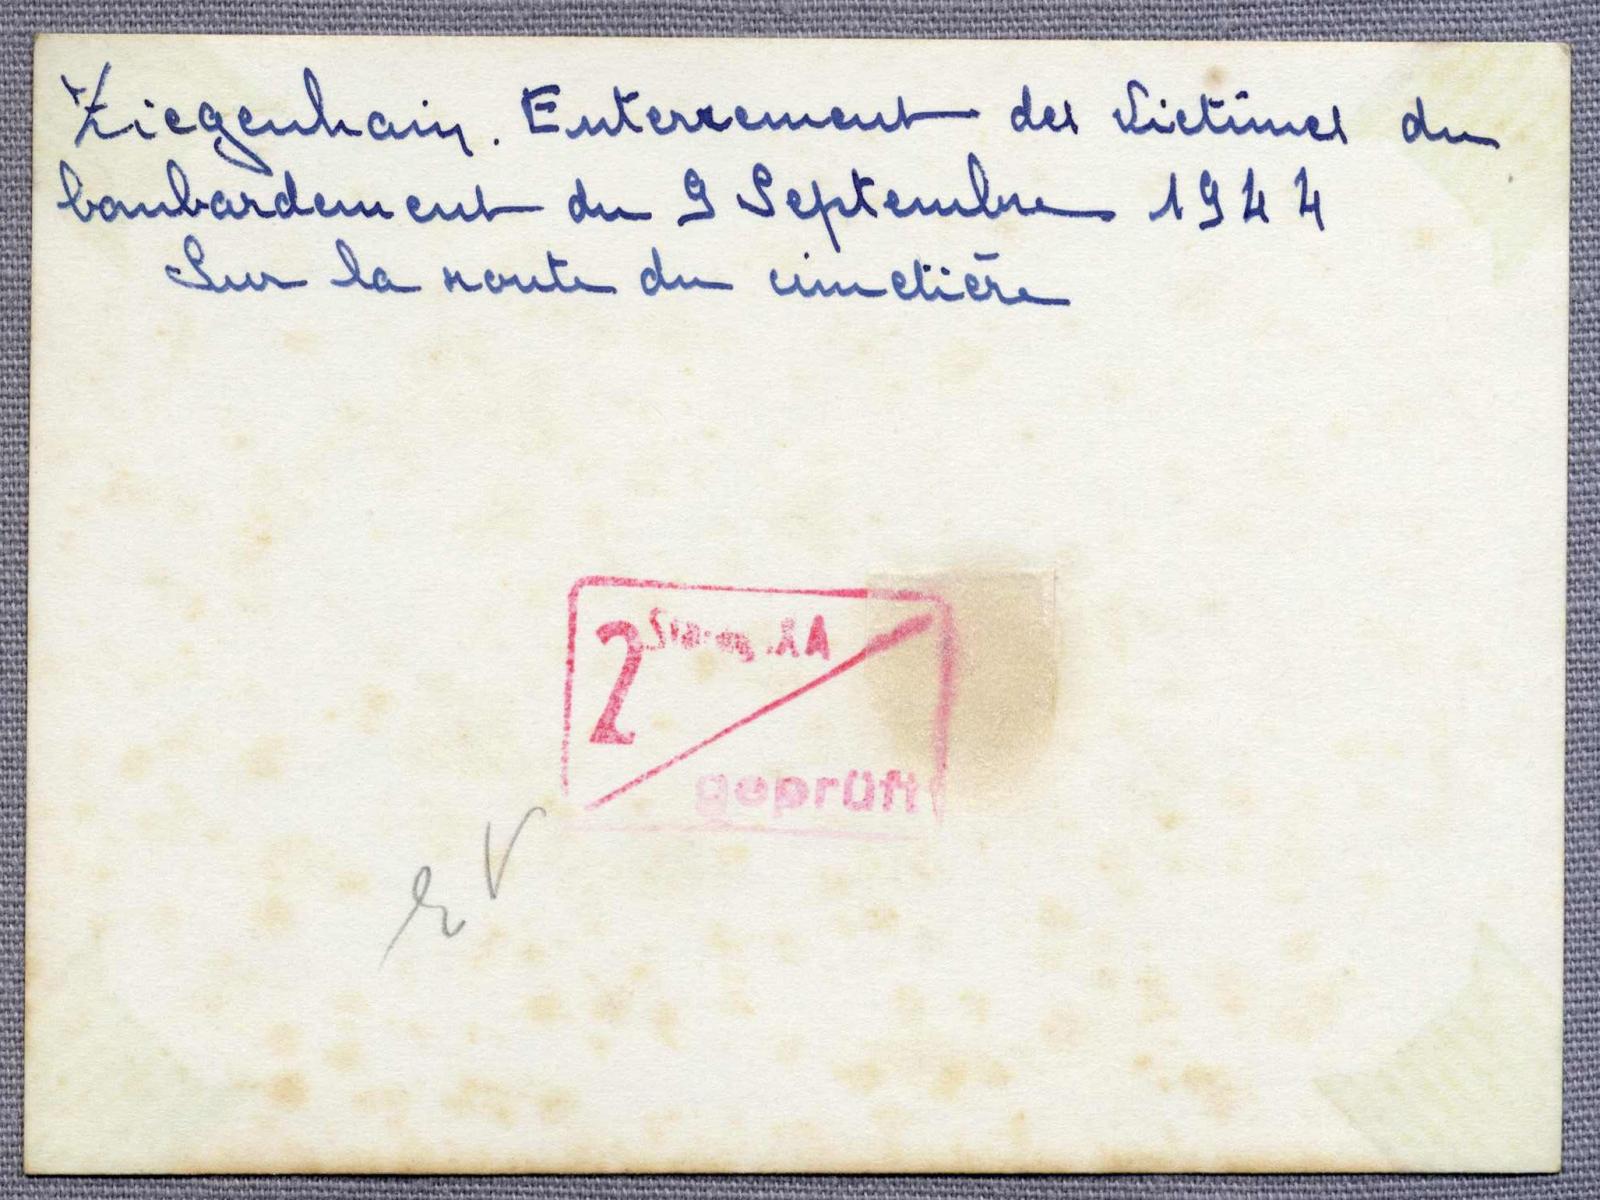 Ziegenhain. Enterrement des Victimes du
bombardement du 9 Septembre 1944
Sur la route du cimetière
2
geprüft